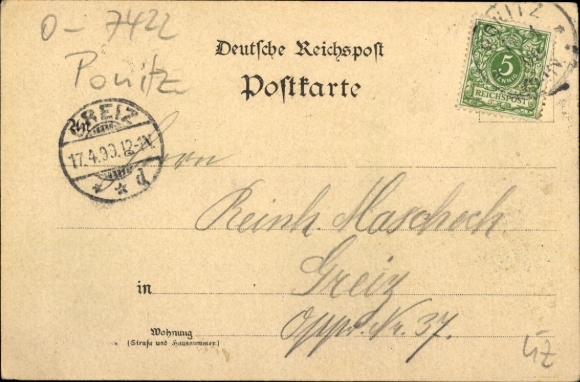 0-7422
Ponitz
Deutsche Reichspost
Postkarte
5
REICHSPOST
GREIZ
17.4.99.12-1N.
* * d
Herrn
Reinh. Maschock
in Greiz
Wohnung
(Straße und Hausnummer)
Nr. 37.